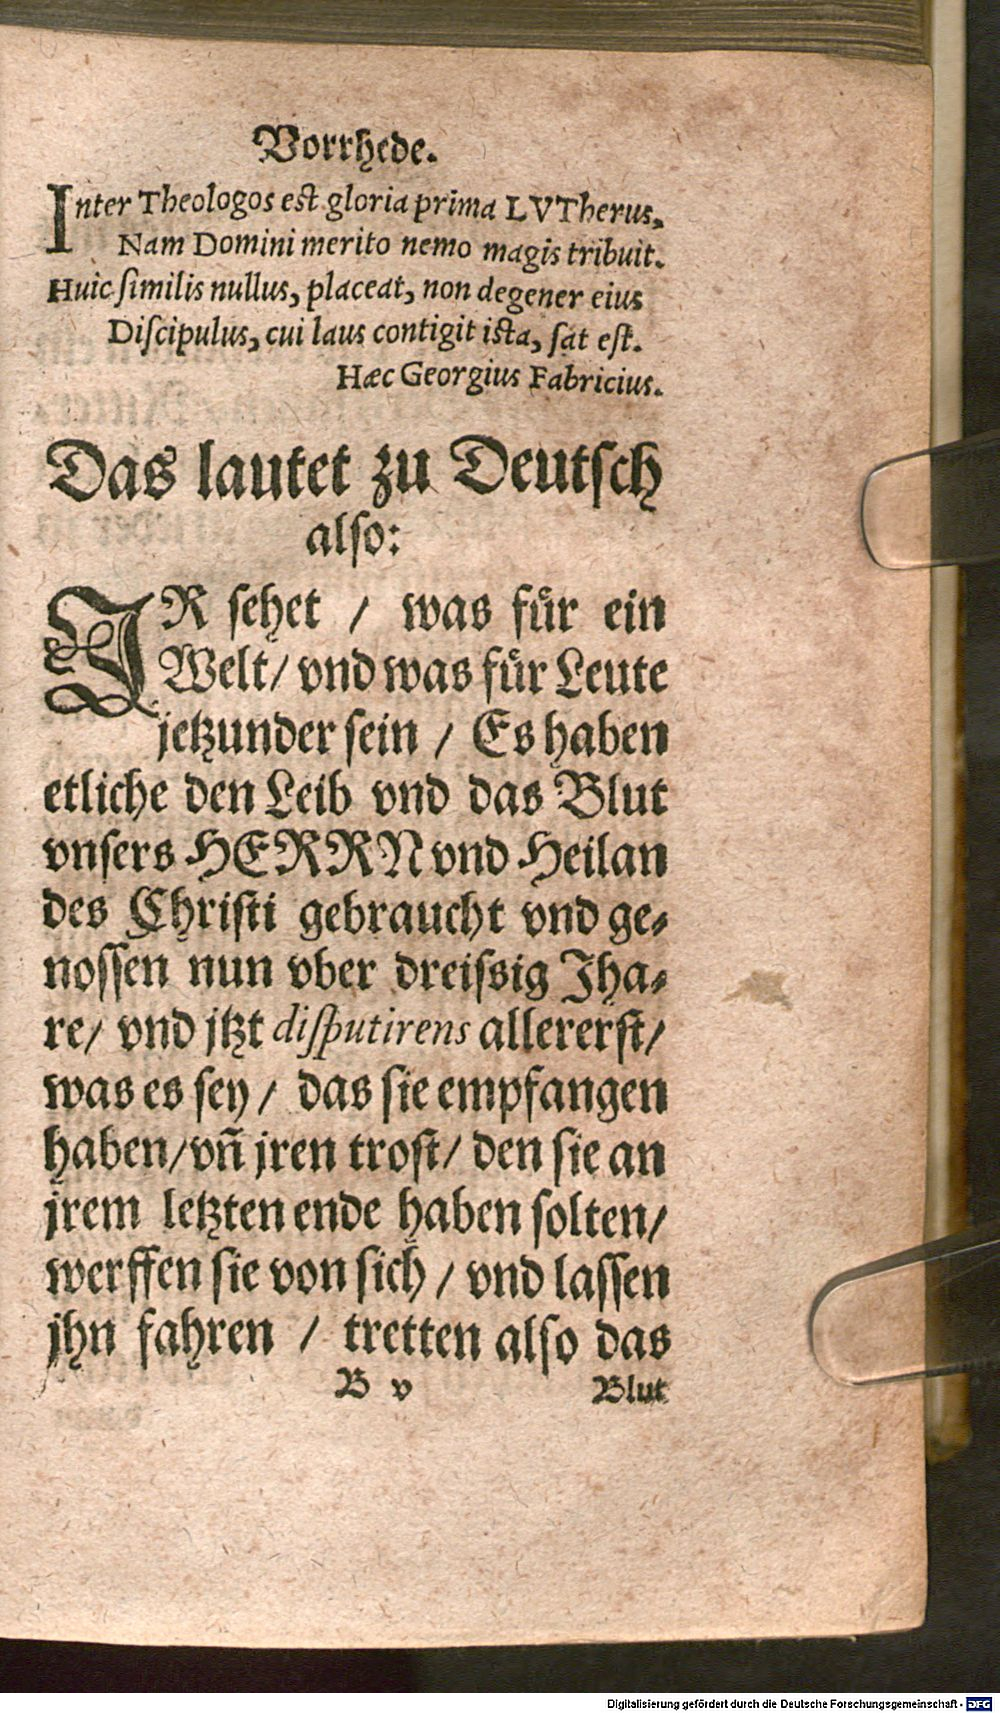 Vorrhede.
Inter Theologos est gloria prima LVTherus,
Nam Domini merito nemo magis tribuit.
Huic ſimilis nullus, placeat, non degener eius
Diſcipulus, cui laus contigit iſta, ſat eſt.
Hæc Georgius Fabricius.
Das lautet zu Deutſch
alſo:
JR ſehet / was fuͤr ein
Welt/ vnd was fuͤr Leute
jetzunder ſein / Es haben
etliche den Leib vnd das Blut
vnſers HERRN vnd Heilan
des Chriſti gebraucht vnd ge⸗
noſſen nun vber dreiſsig Jha⸗
re/ vnd jtzt diſputirens allererſt/
was es ſey / das ſie empfangen
haben/vn̄ jren troſt/ den ſie an
jrem letzten ende haben ſolten/
werffen ſie von ſich / vnd laſſen
jhn fahren / tretten alſo das
B v Blut
Digitalisierung gefördert durch die Deutsche Forschungsgemeinschaft - DFG